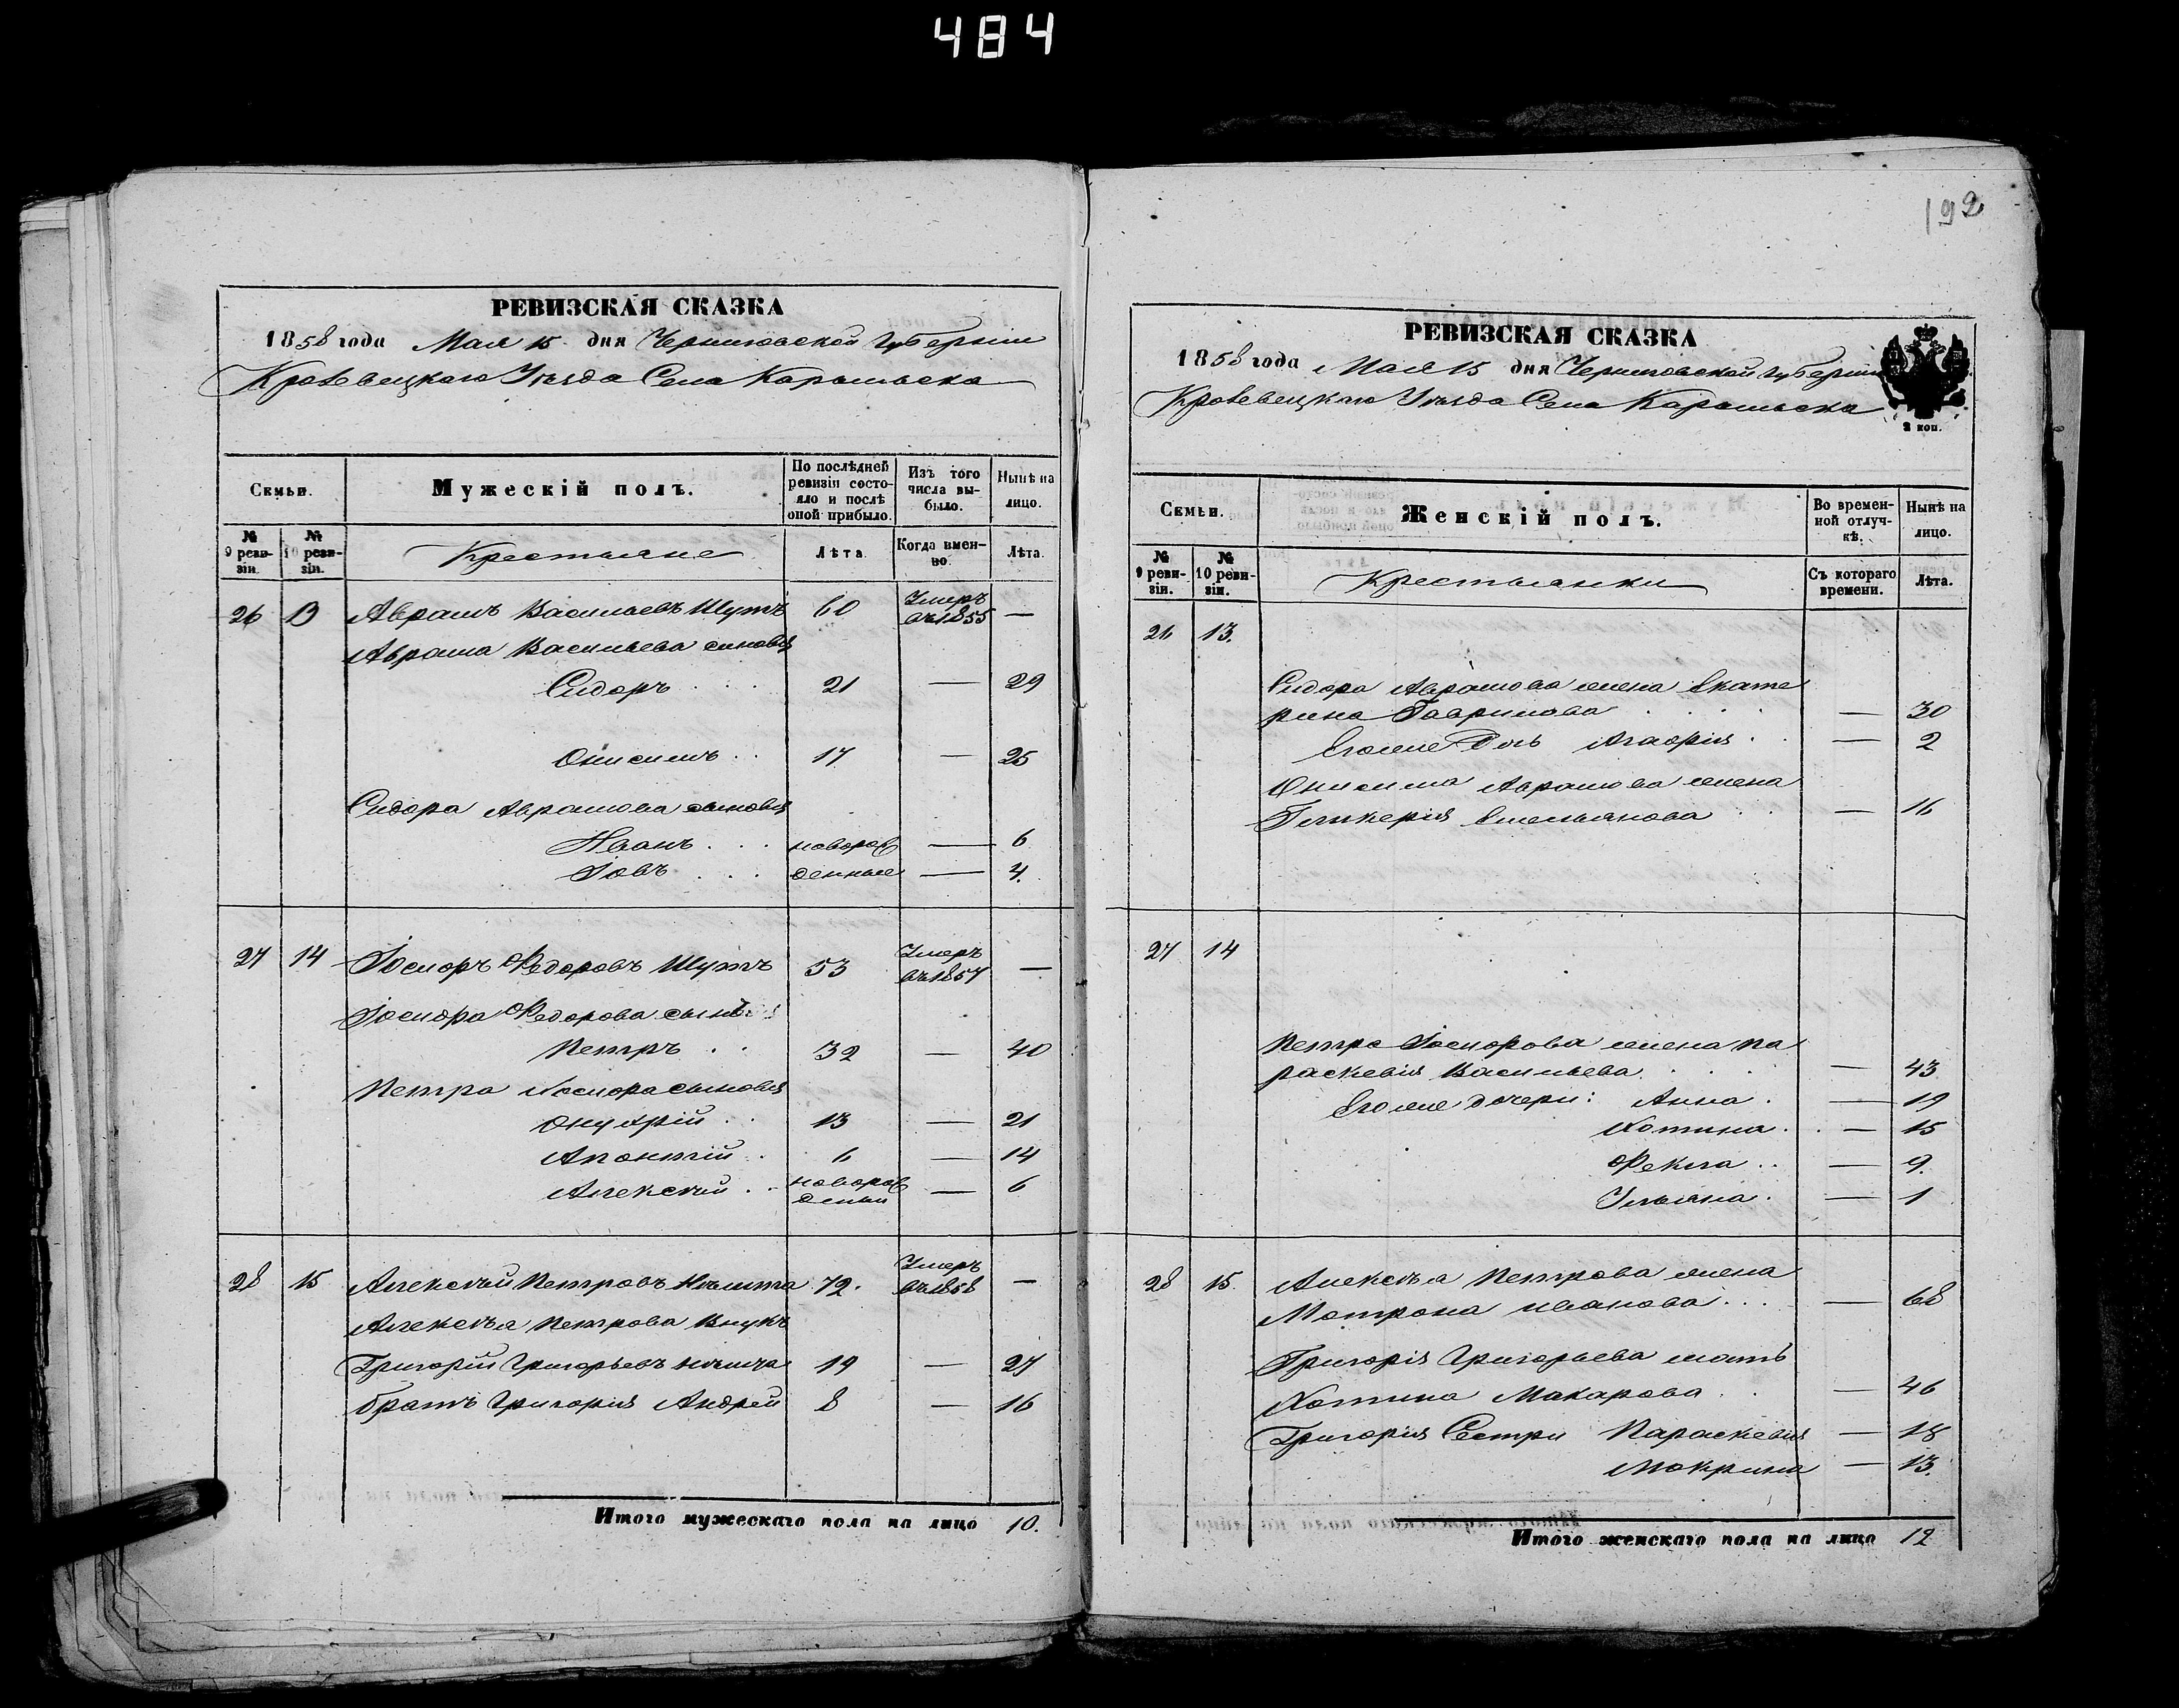 484
192
РЕВИЗСКАЯ СКАЗКА
1858 года Мая 15 дня Черниговской губерніи
Кролевецкаго Уѣзда Села Карыльска
Семьи.
Мужескій полъ.
По послѣдней ревизіи состояло и послѣ оной прибыло.
Изъ того числа выбыло.
Нынѣ на лицо.
№ 9 ревизіи.
№ 10 ревизіи.
Крестьяне
Лѣта.
Когда именно.
Лѣта.
26 13 Аврамъ Васильевъ Шутъ 60 Умеръ въ 1855 —
Аврама Васильева сыновья
Сидоръ 21 — 29
Онисимъ 17 — 25
Сидора Аврамова сыновья
Иванъ новорож — 6
Іовъ денные — 4
27 14 Федоровъ Шутъ 53 Умеръ въ 1857 —
Федорова сынъ
Петръ 32 — 40
Петра сыновья
Онуфрій 13 — 21
Леонтій 6 — 14
Алексѣй новорожденый — 6
28 15 Алексѣй Петровъ 72. Умеръ въ 1858 —
Алексѣя Петрова внукъ
Григорій Григорьевъ 19 — 27
братъ Григорія Андрей 8 — 16
Итого мужескаго пола на лицо 10.
РЕВИЗСКАЯ СКАЗКА
1858 года Мая 15 дня Черниговской губерніи
Кролевецкаго Уѣзда Села Карыльска
2 коп.
Семьи.
Женскій полъ.
Во временной отлучкѣ.
Нынѣ на лицо.
№ 9 ревизіи.
№ 10 ревизіи.
Крестьянки
Съ котораго времени.
Лѣта.
26 13.
Сидора Аврамова жена Екате
рина Гаврилова — 30
Его же дочь Агафія — 2
Онисима Аврамова жена
Гликерія Емельянова — 16
27 14
Петра жена Па
раскевія Васильева — 43
Его же дочери: Анна — 19
Хотина — 15
Фекла — 9.
Ульяна — 1
28 15. Алексѣя Петрова жена
Матрона Иванова — 68
Григорія Григорьева мать
Хотина Макарова — 46
Григорія сестри Параскевія — 18
Мокрина — 13.
Итого женскаго пола на лицо 12